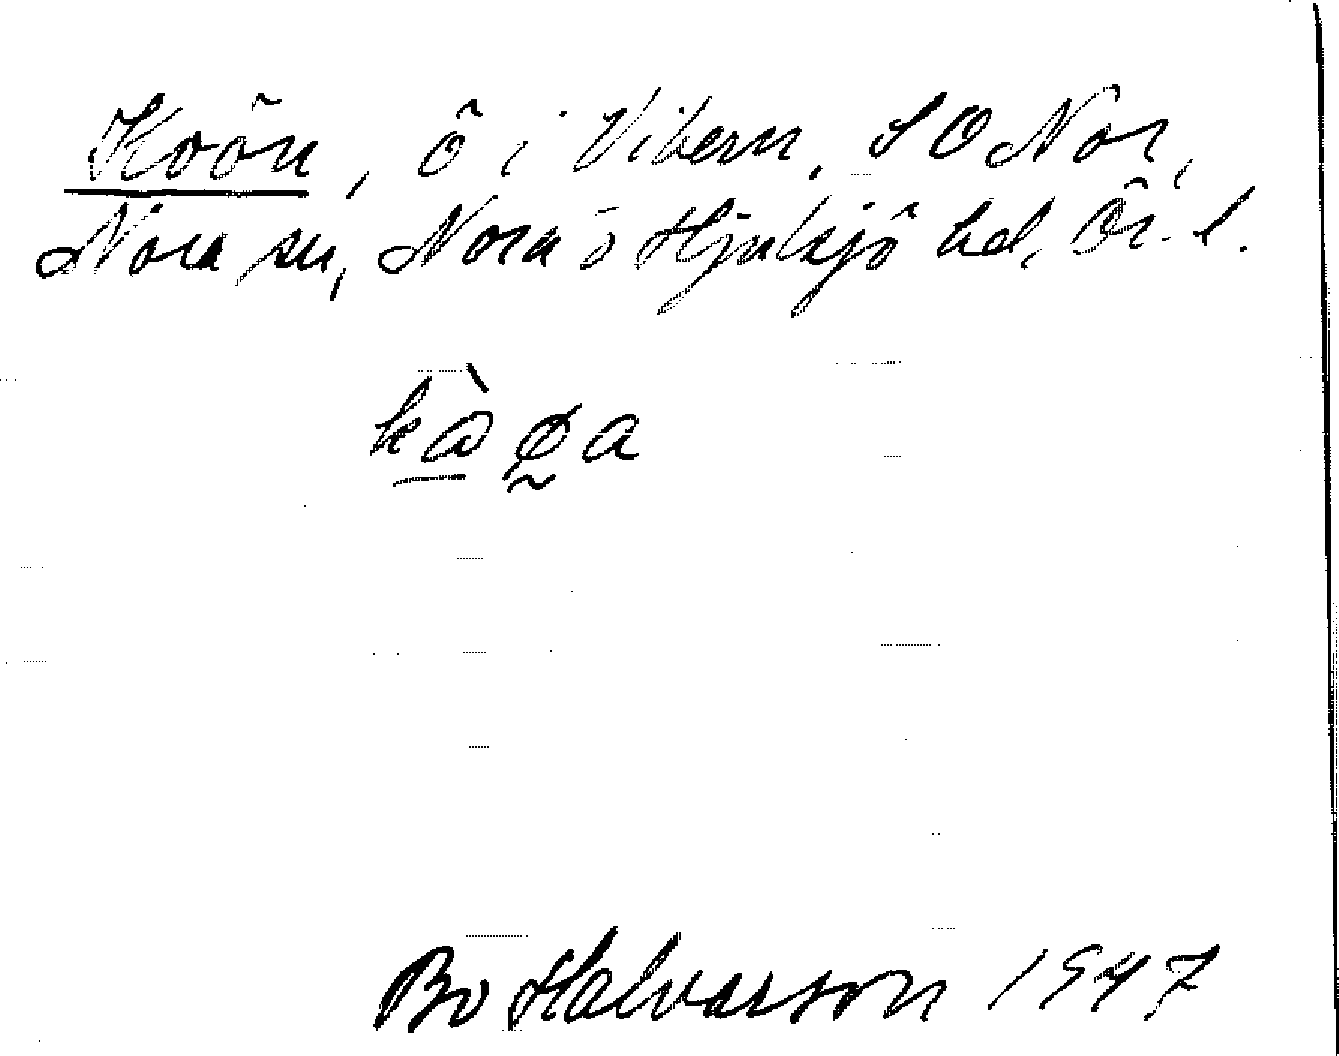 Koön, ö i Vikern, SO Nor,
Nora sn, Nora o Hjulsjö hd, Ör. l.
Bo Halvarson 1947